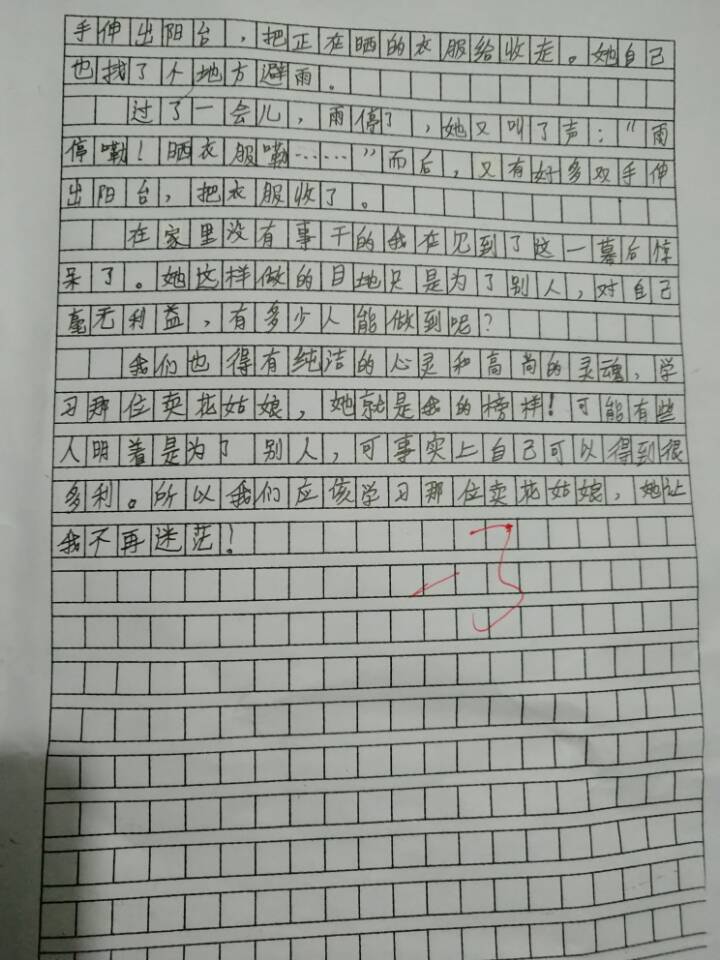 手伸出阳台，把正在晒的衣服给收走。她自己
也找了个地方避雨。
过了一会儿，雨停了，她又叫了声：“雨
停嘞！晒衣服嘞……”而后，又有好多双手伸
出阳台，把衣服收了。
在家里没有事干的我在见到了这一幕后惊
呆了。她这样做的目地只是为了别人，对自己
毫无利益，有多少人能做到呢？
我们也得有纯洁的心灵和高尚的灵魂，学
习那位卖花姑娘，她就是我的榜样！可能有些
人明着是为了别人，可事实上自己可以得到很
多利。所以我们应该学习那位卖花姑娘，她让
我不再迷茫！